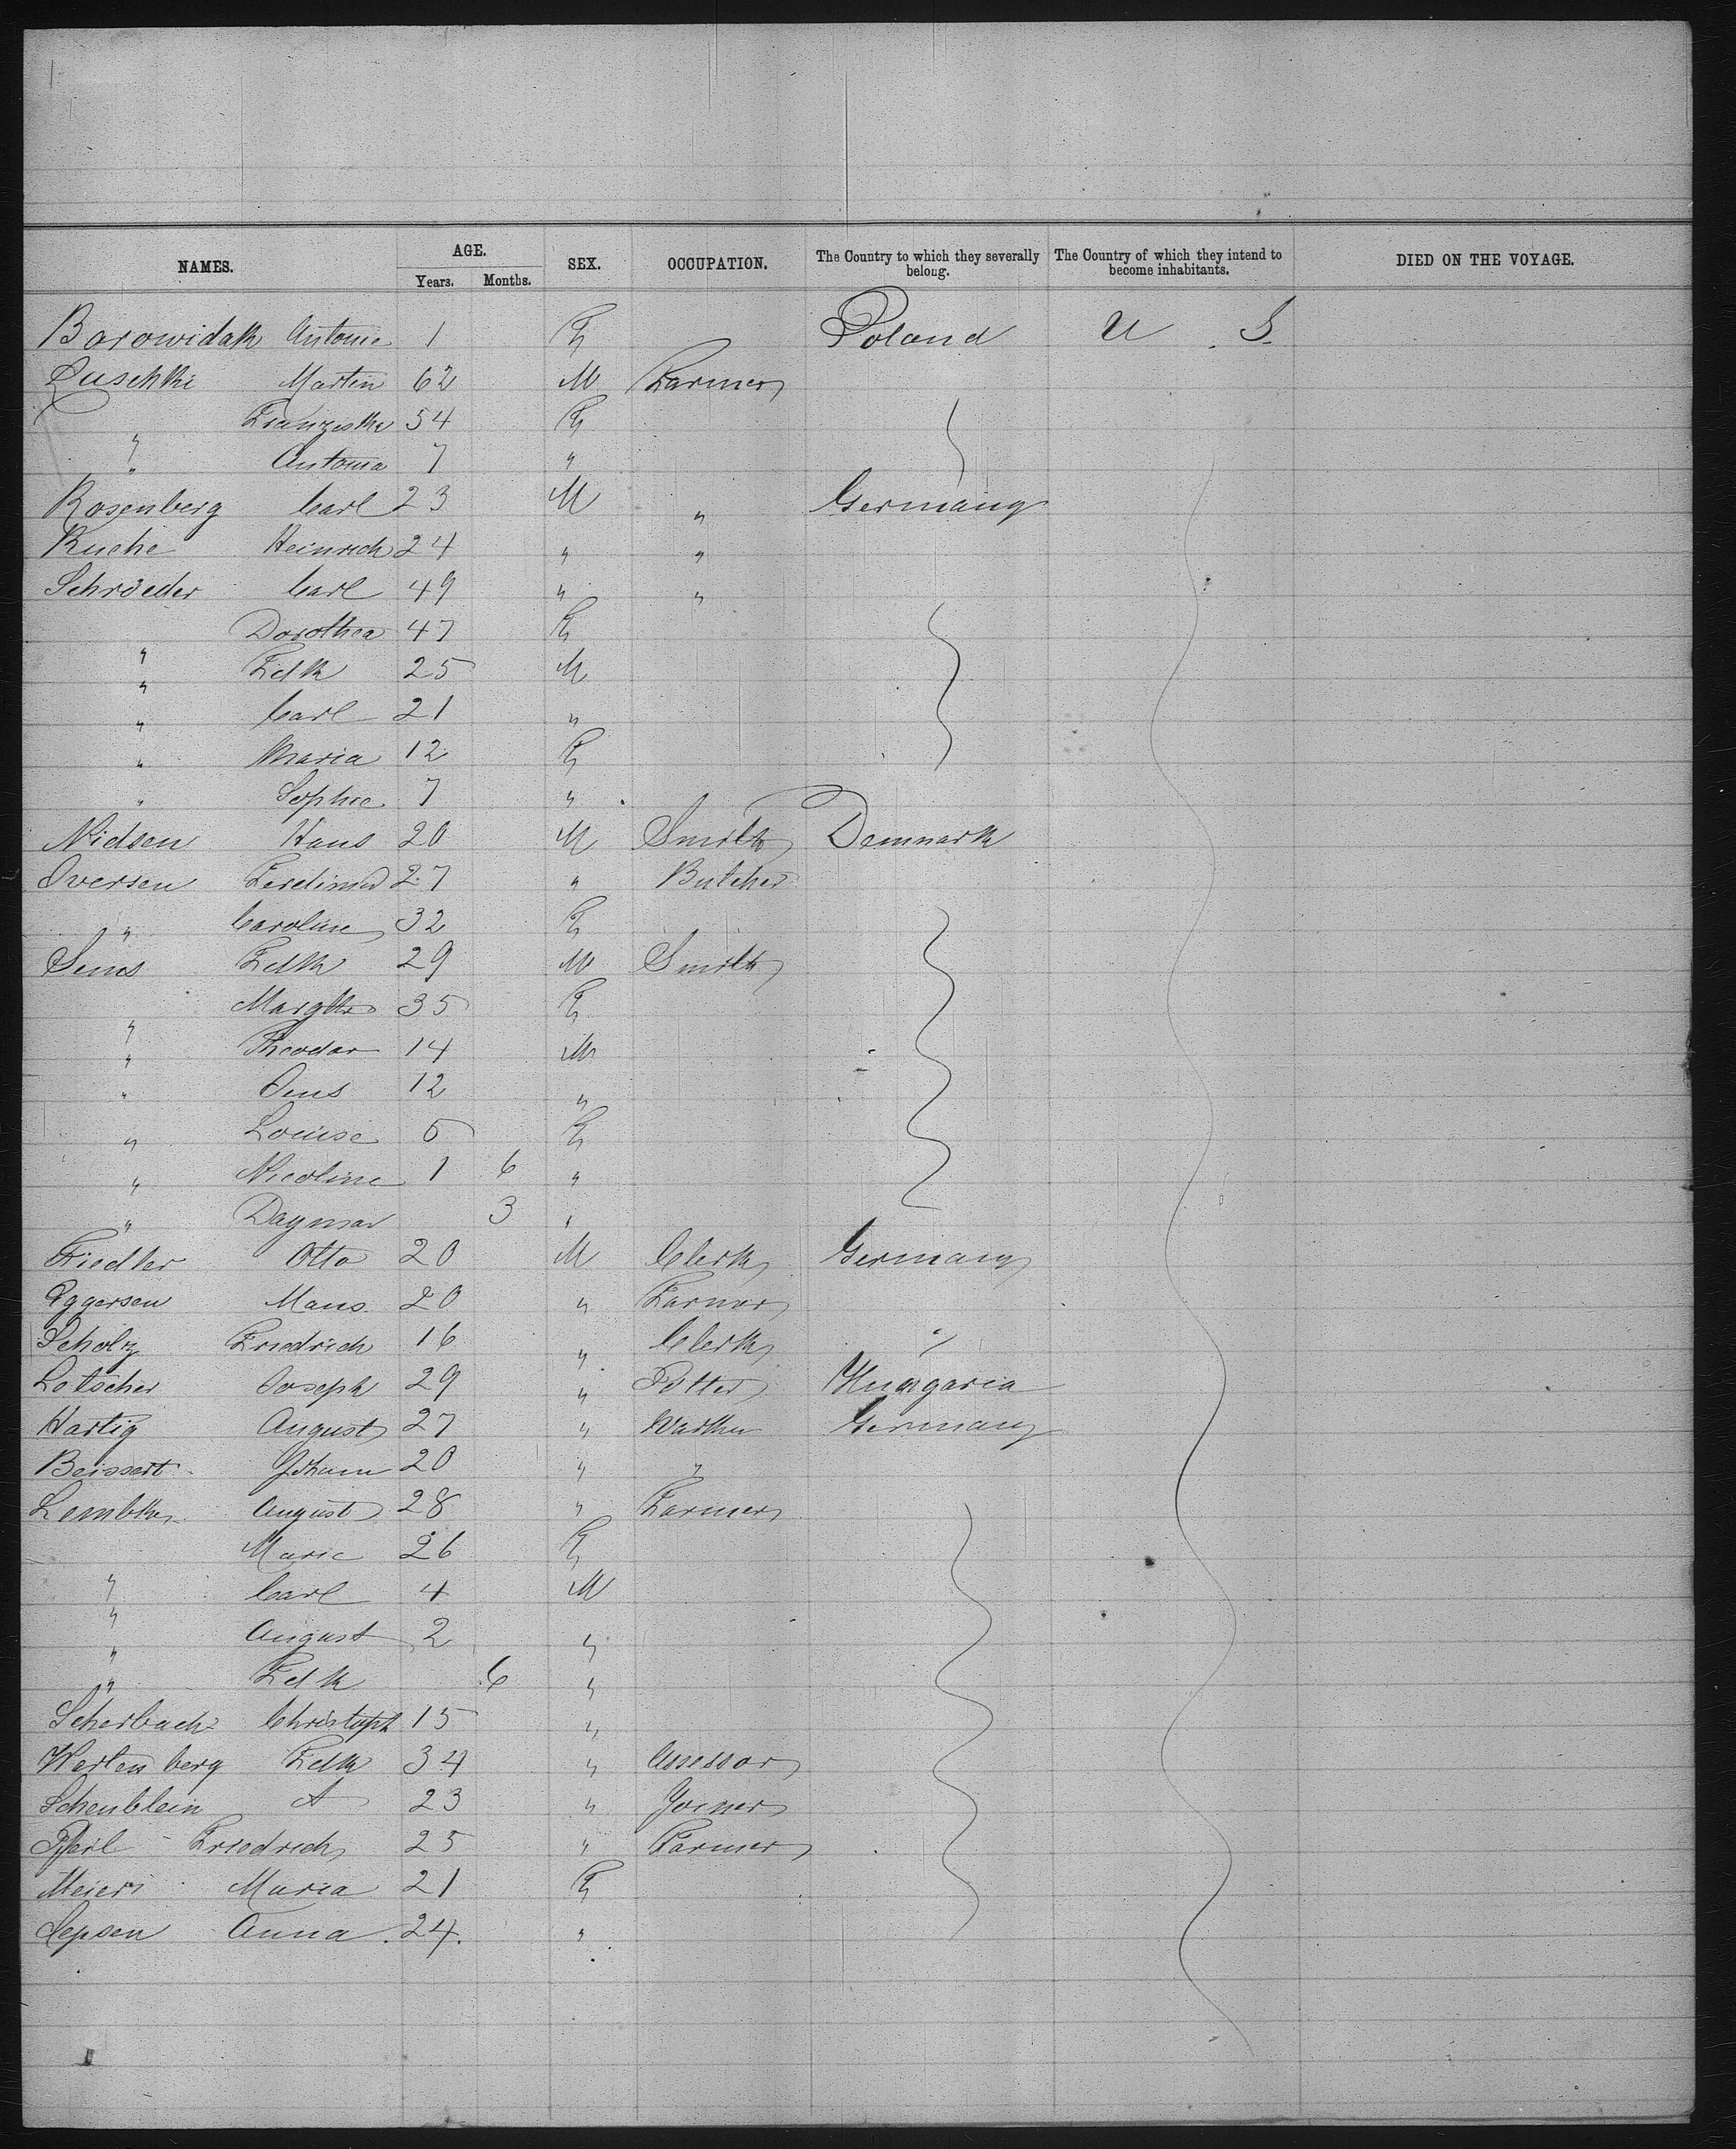 NAMES. AGE. SEX. OCCUPATION. The Country to which they severally belong. The Country of which they intend to become inhabitants. DIED ON THE VOYAGE.
Years. Months.
Borowidak Antonie 1 F Poland U. S.
Puschki Martin 62 M Farmer
" Franziska 54 F
" Antonia 7 "
Rosenberg Carl 23 M " Germany
Ruche Heinrich 24 " "
Schröeder Carl 49 " "
" Dorothea 47 F
" Fdk 25 M
" Carl 21 "
" Maria 12 F
" Sophie 7 "
Nidsen Hans 20 M Smith Denmark
Iversen Ferdinand 27 " Butcher
" Caroline 32 F
Sens Fdk 29 M Smith
" Margthe 35 F
" Theodor 14 M
" Jens 12 "
" Louise 5 F
" Nicoline 1 6 "
" Dagmar 3 "
Fiedler Otto 20 M Clerk Germany
Eggersen Hans 20 " Farmer
Scholz Friedrich 16 " Clerk "
Lotscher Joseph 29 " Potter Hungaria
Hartig August 27 " Germany
Beissert Johann 20 " "
Lembke August 28 " Farmer
" Marie 26 F
" Carl 4 M
" August 2 "
" Fdk 6 "
Scherbach Christoph 15 "
Wertenberg Fdk 34 " Assessor
Scheublein A 23 " Joiner
Pfeil Friedrich 25 " Farmer
Meier Maria 21 F
Jepsen Anna 24 "